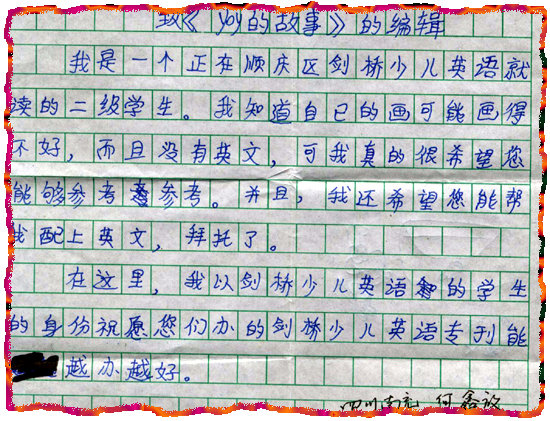 致《yoy的故事》的编辑
我是一个正在顺庆区剑桥少儿英语就
读的二级学生。我知道自己的画可能画得
不好，而且没有英文，可我真的很希望您
能够参考参考。并且，我还希望您能帮
我配上英文，拜托了。
在这里，我以剑桥少儿英语的学生
的身份祝愿您们办的剑桥少儿英语专刊能
越办越好。
四川南充 何鑫